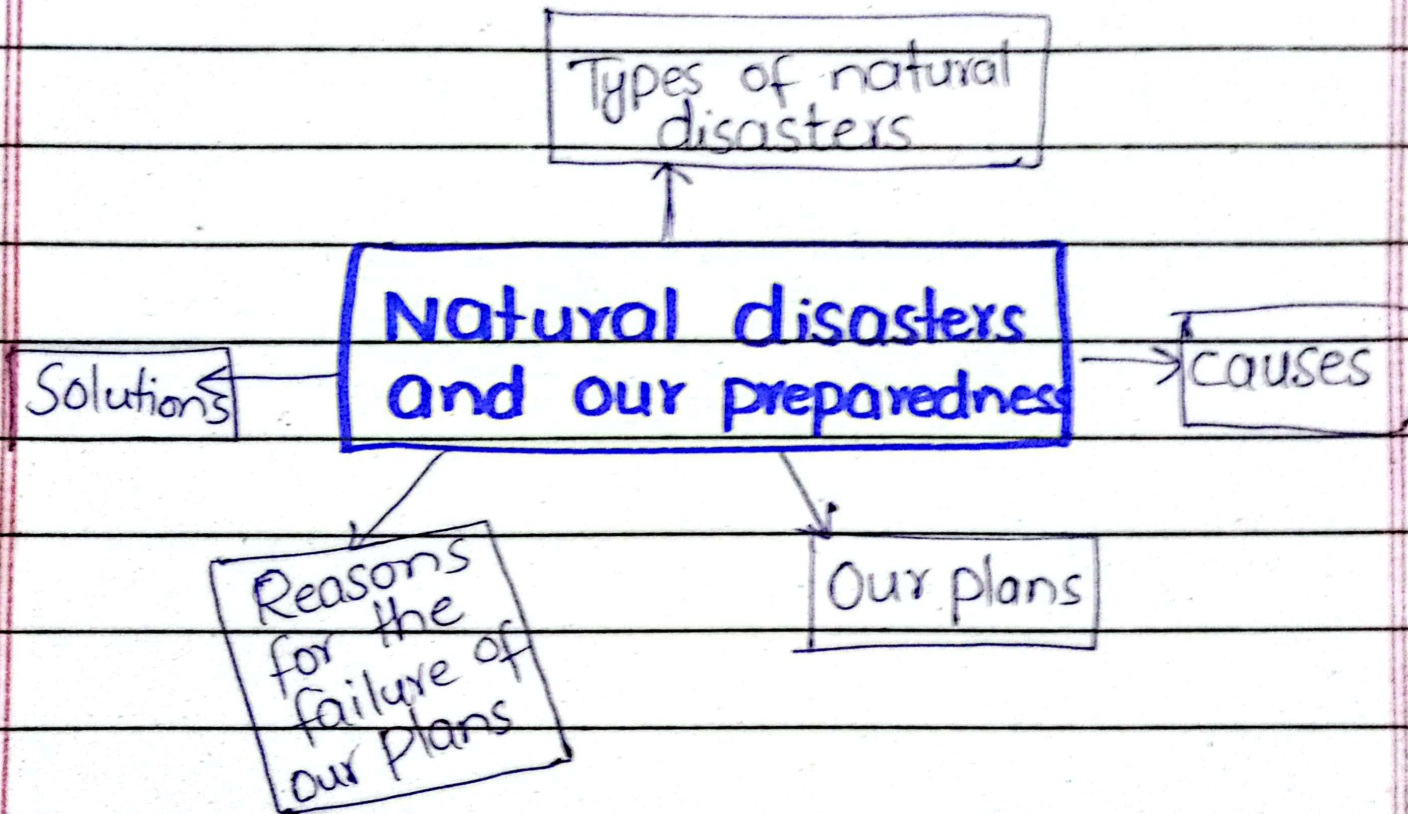 Types of natural
disasters
Natural disasters
and our preparedness
Solutions
causes
Reasons
for the
failure of
our plans
Our plans